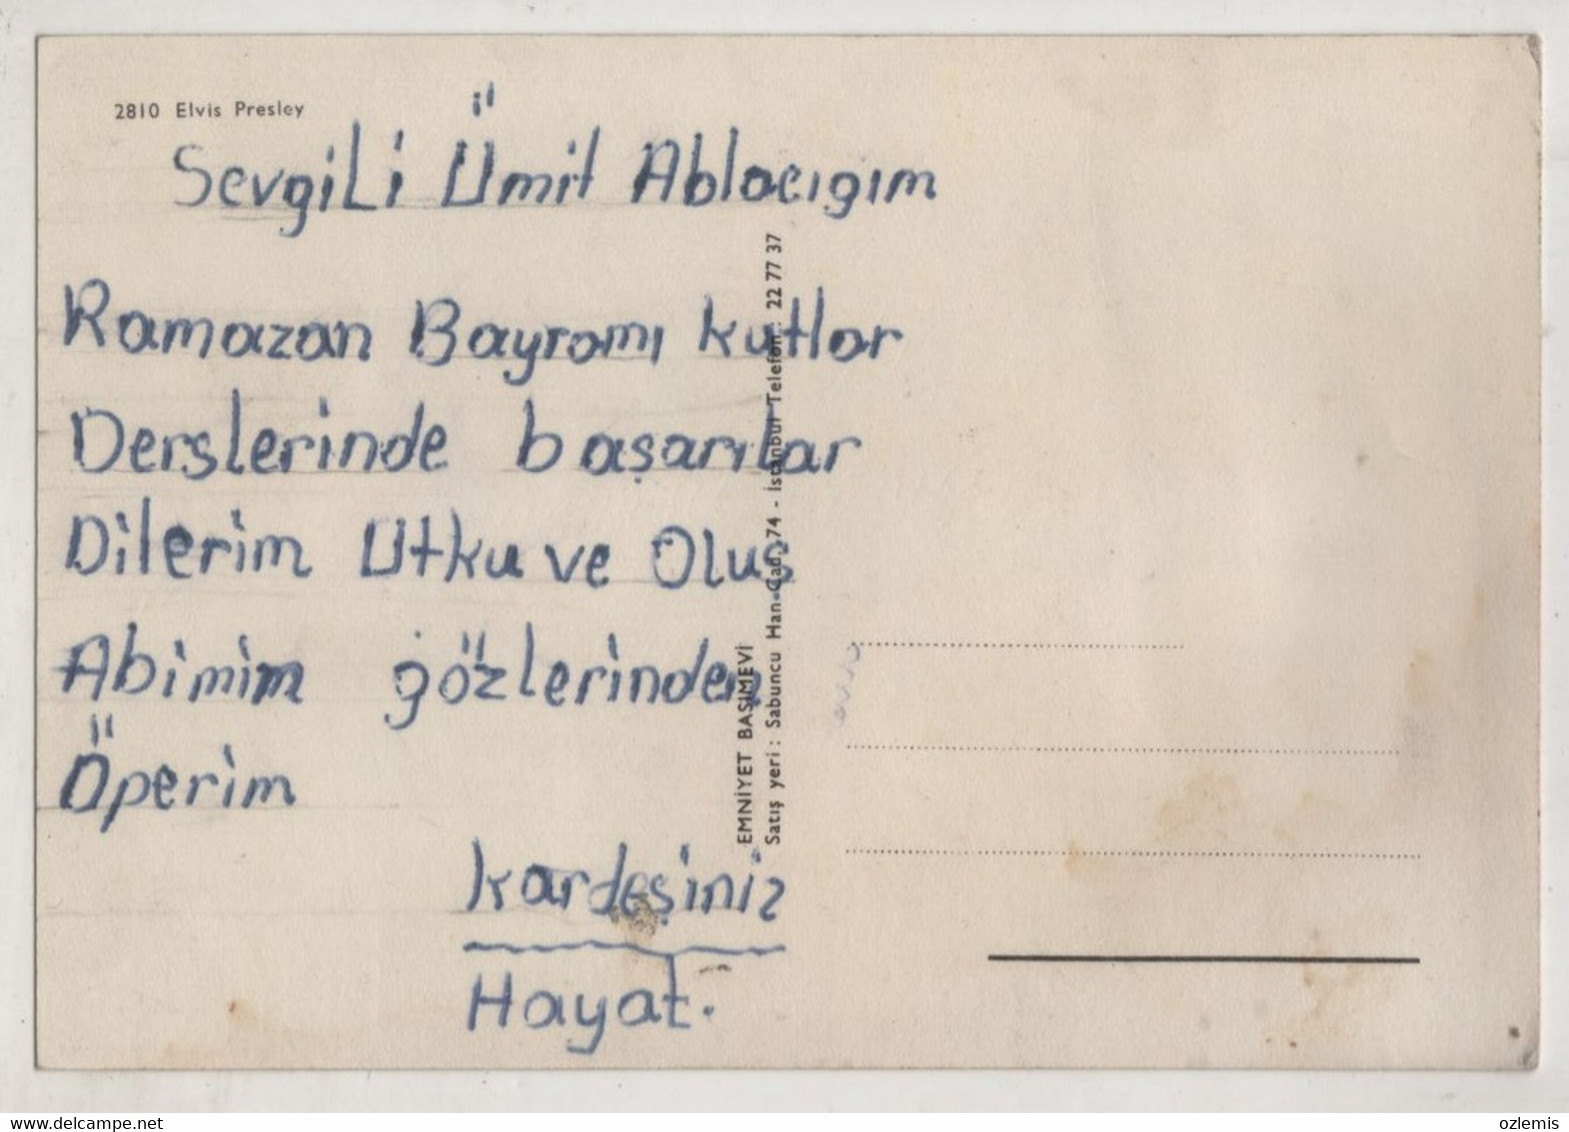 2810 Elvis Presley
SevgiLi Ümit Ablacıgım
Ramazan Bayramı kutlar
Derslerinde başarılar
Dilerim Utku ve Oluş
Abimim gözlerinden
Öperim
kardeşiniz
Hayat.
EMNİYET BASIMEVİ
Satış yeri : Sabuncu Han Cad. 74 - İstanbul Telefon : 22 77 37
delcampe.net
ozlemis